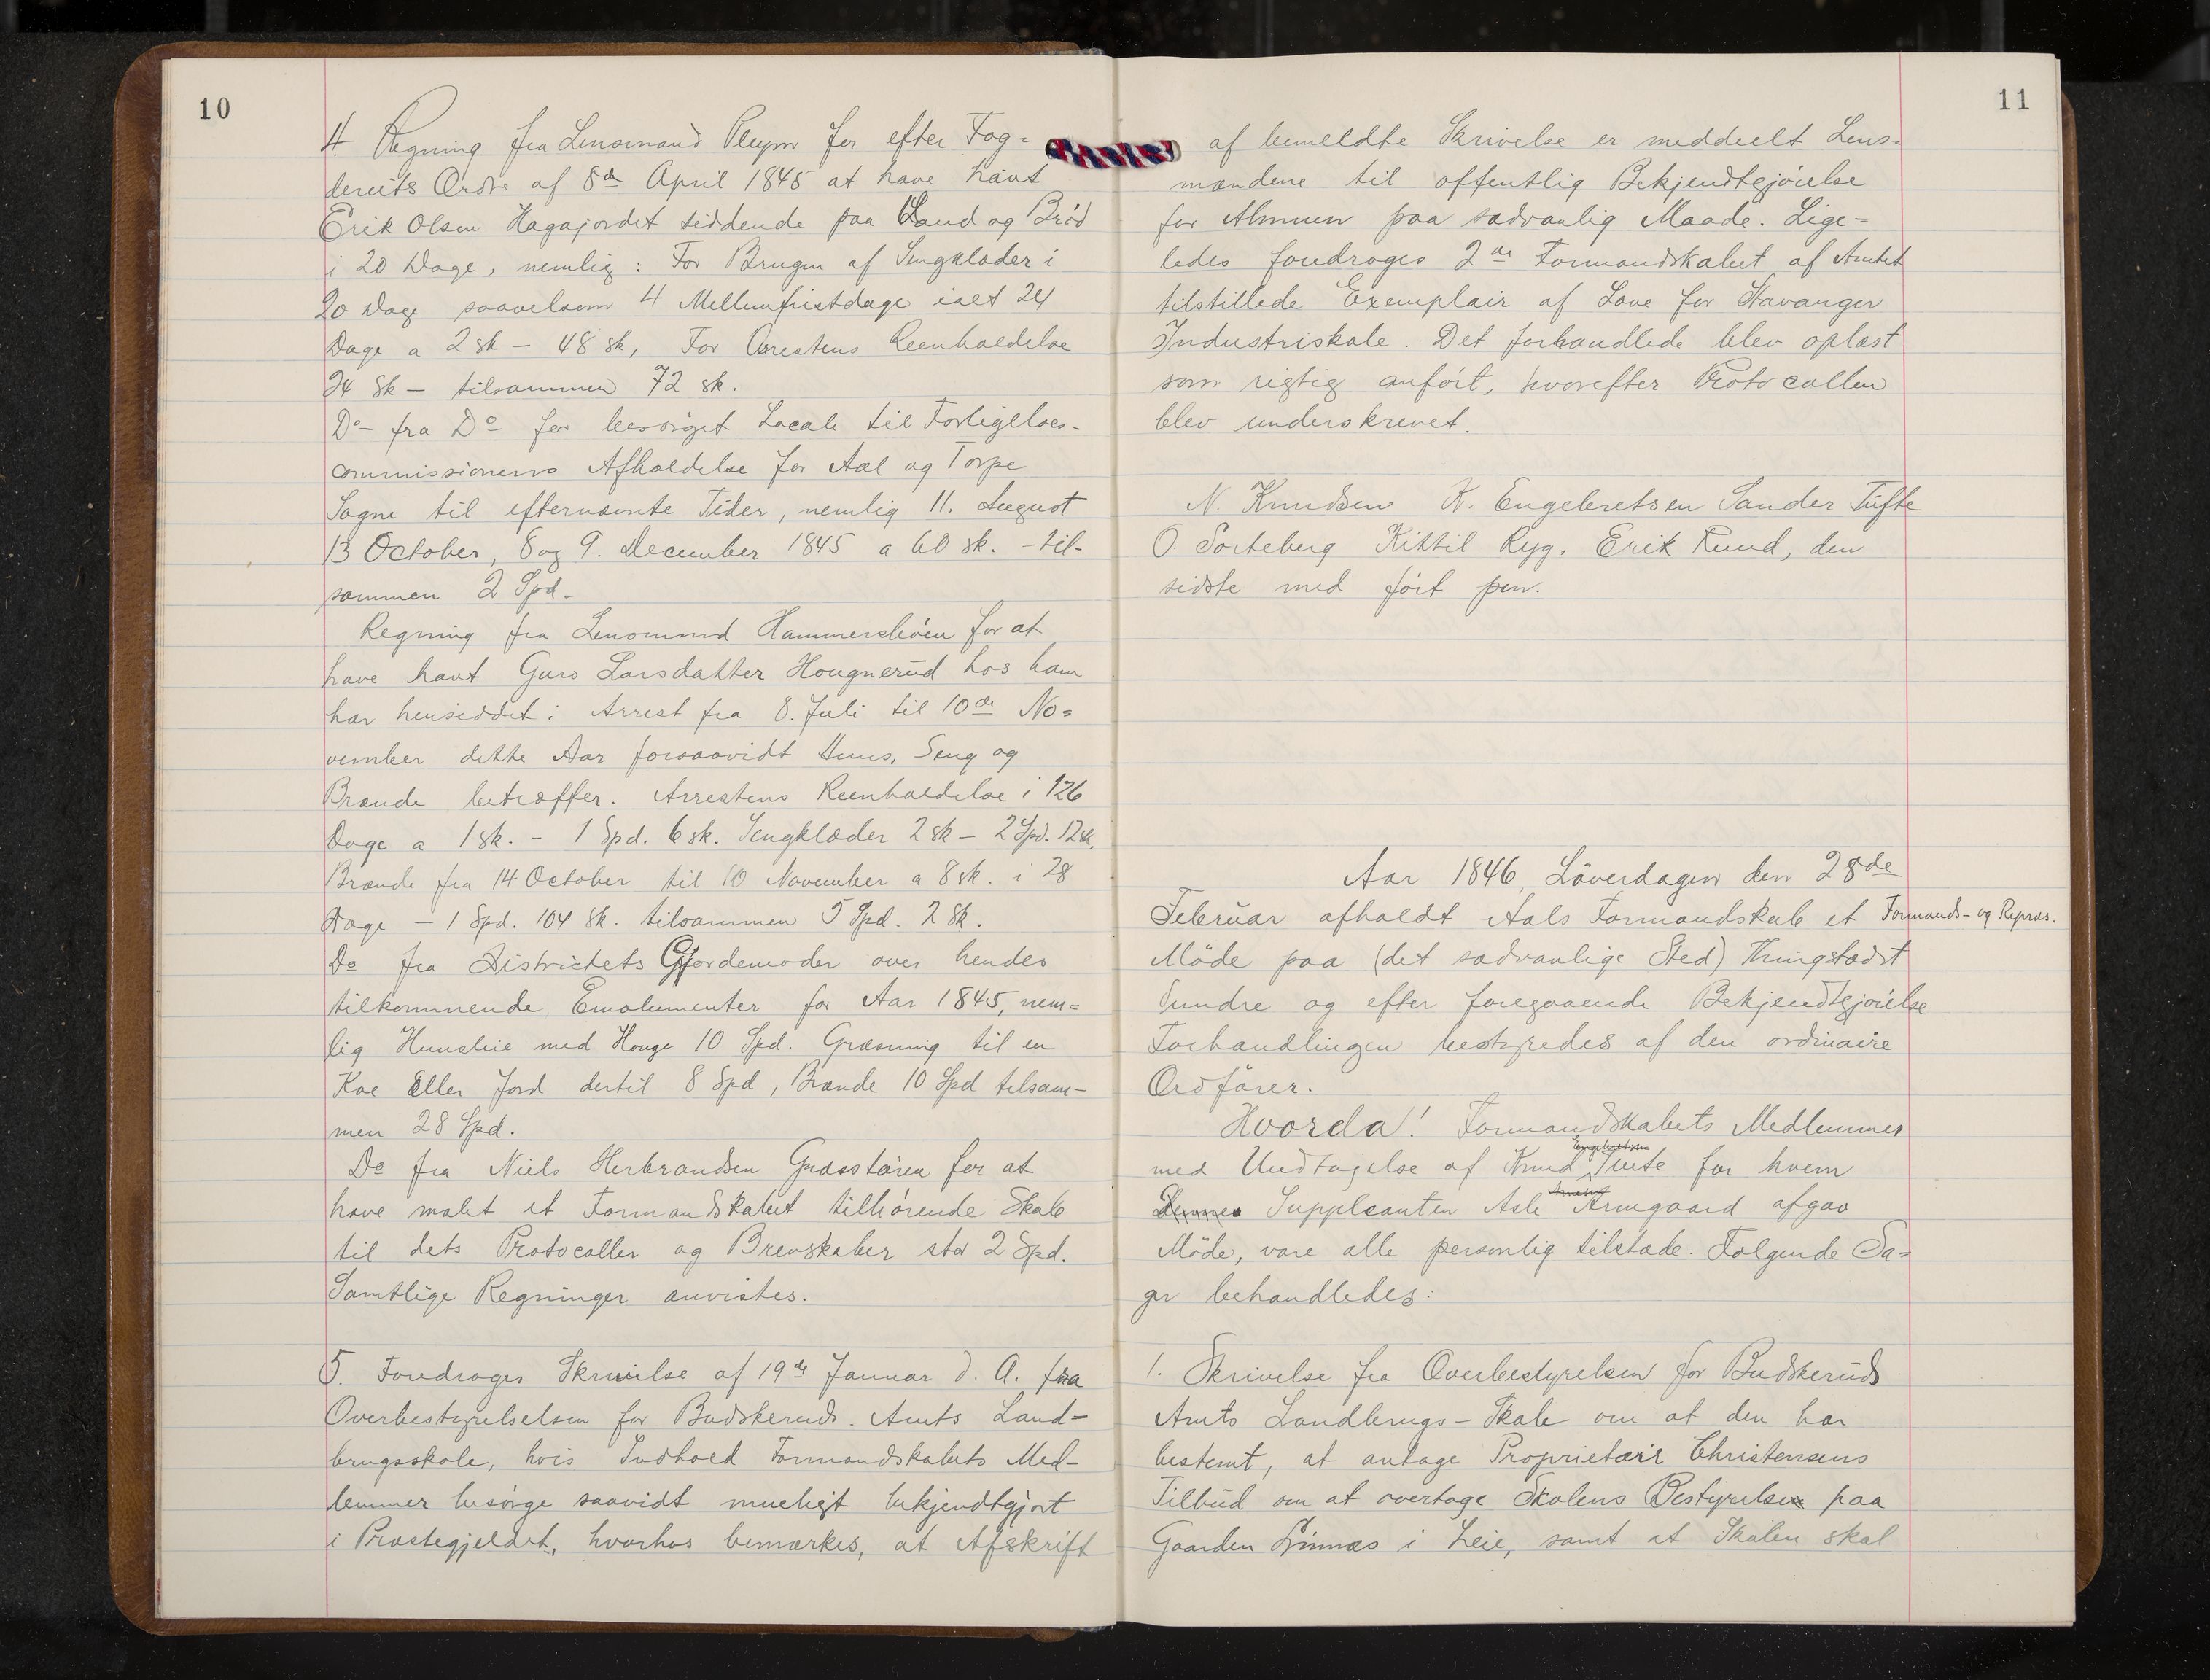 10
4. Regning fra Lensmand Pleym for efter Fog=
deriets Ordre af 8de April 1845 at have havt
Erik Olsen Hagajordet siddende paa Vand og Brød
i 20 Dage, nemlig: For Brugen af Sengklæder i
20 Dage saavelsom 4 Mellemfristdage ialt 24
Dage a 2 sk - 48 sk, For Arrestens Reenholdelse
24 sk - tilsammen 72 sk.
Do- fra Do for besørget Locale til Forligelses-
commissionens Afholdelse for Aal og Torpe
Sogne til efternævnte Tider, nemlig 11. August
13 October, 8 og 9. December 1845 a 60 sk. - til-
sammen 2 Spd.
Regning fra Lensmand Hammersbøen for at
have havt Guro Larsdatter Hougnerud hos ham
har hensiddet i Arrest fra 8. Juli til 10de No=
vember dette Aar forsaavidt Huus, Seng og
Brænde betræffer. Arrestens Reenholdelse i 126
Dage a 1 sk. - 1 Spd. 6 sk. Sengklæder 2 sk - 2 Spd. 12 sk,
Brænde fra 14 October til 10 November a 8 sk. i 28
Dage - 1 Spd. 104 sk. tilsammen 5 Spd. 2 sk.
Do fra Districtets Gjordemoder over hendes
tilkommende Emolumenter for Aar 1845, nem=
lig Huusleie med Houge 10 Spd. Græsning til en
Koe Eller Jord dertil 8 Spd, Brænde 10 Spd tilsam-
men 28 Spd.
Do fra Niels Herbrandsen Græsstøren for at
have malet et Formandskabet tilhørende Skab
til dets Protocoller og Brevskaber stor 2 Spd.
Samtlige Regninger anvistes.
5. Foredroges Skrivelse af 19de Januar d. A. fra
Overbestyrelselsen for Budskeruds. Amts Land-
brugsskole, hvis Indhold Formandskabets Med-
lemmer besørge saavidt mueligt bekjendtgjort
i Præstegjeldet, hvorhos bemærkes, at Afskrift
11
af bemeldte Skrivelse er meddeelt Lens-
mændene til offentlig Bekjendtgjørelse
for Almuen paa sædvanlig Maade. Lige=
ledes foredroges 2de Formandskabet af Amtet
tilstillede Exemplair af Love for Stavanger
Industriskole. Det forhandlede blev oplæst
som rigtig anført, hvorefter Protocollen
blev underskrevet.
N. Knudsen K. Engebretsen Sander Tufte
O. Sorteberg Kittil Ryg. Erik Ruud, den
sidste med ført pen.
Aar 1846, Löverdagen den 28de
Februar afholdt Aals Formandskab et Formands- og Repræs.
Möde paa (det sædvanlige Sted) Thingstedet
Sundre og efter foregaaende Bekjendtgjørelse
Forhandlingen bestyredes af den ordinaire
Ordfører.
Hvorda! Formandskabets Medlemmer
med Undtagelse af Knud Engebretsen Tufte for hvem
Supplcanten Asle Arnegaard afgav
Möde, vare alle personlig tilstæde. Følgende Sa=
ger behandledes:
1. Skrivelse fra Overbestyrelsen for Budskeruds
Amts Landbrugs-Skole om at den har
bestemt, at antage Proprietair Christensens
Tilbud om at overtage Skolens Bestyrelse paa
Gaarden i Leie, samt at Skolen skal